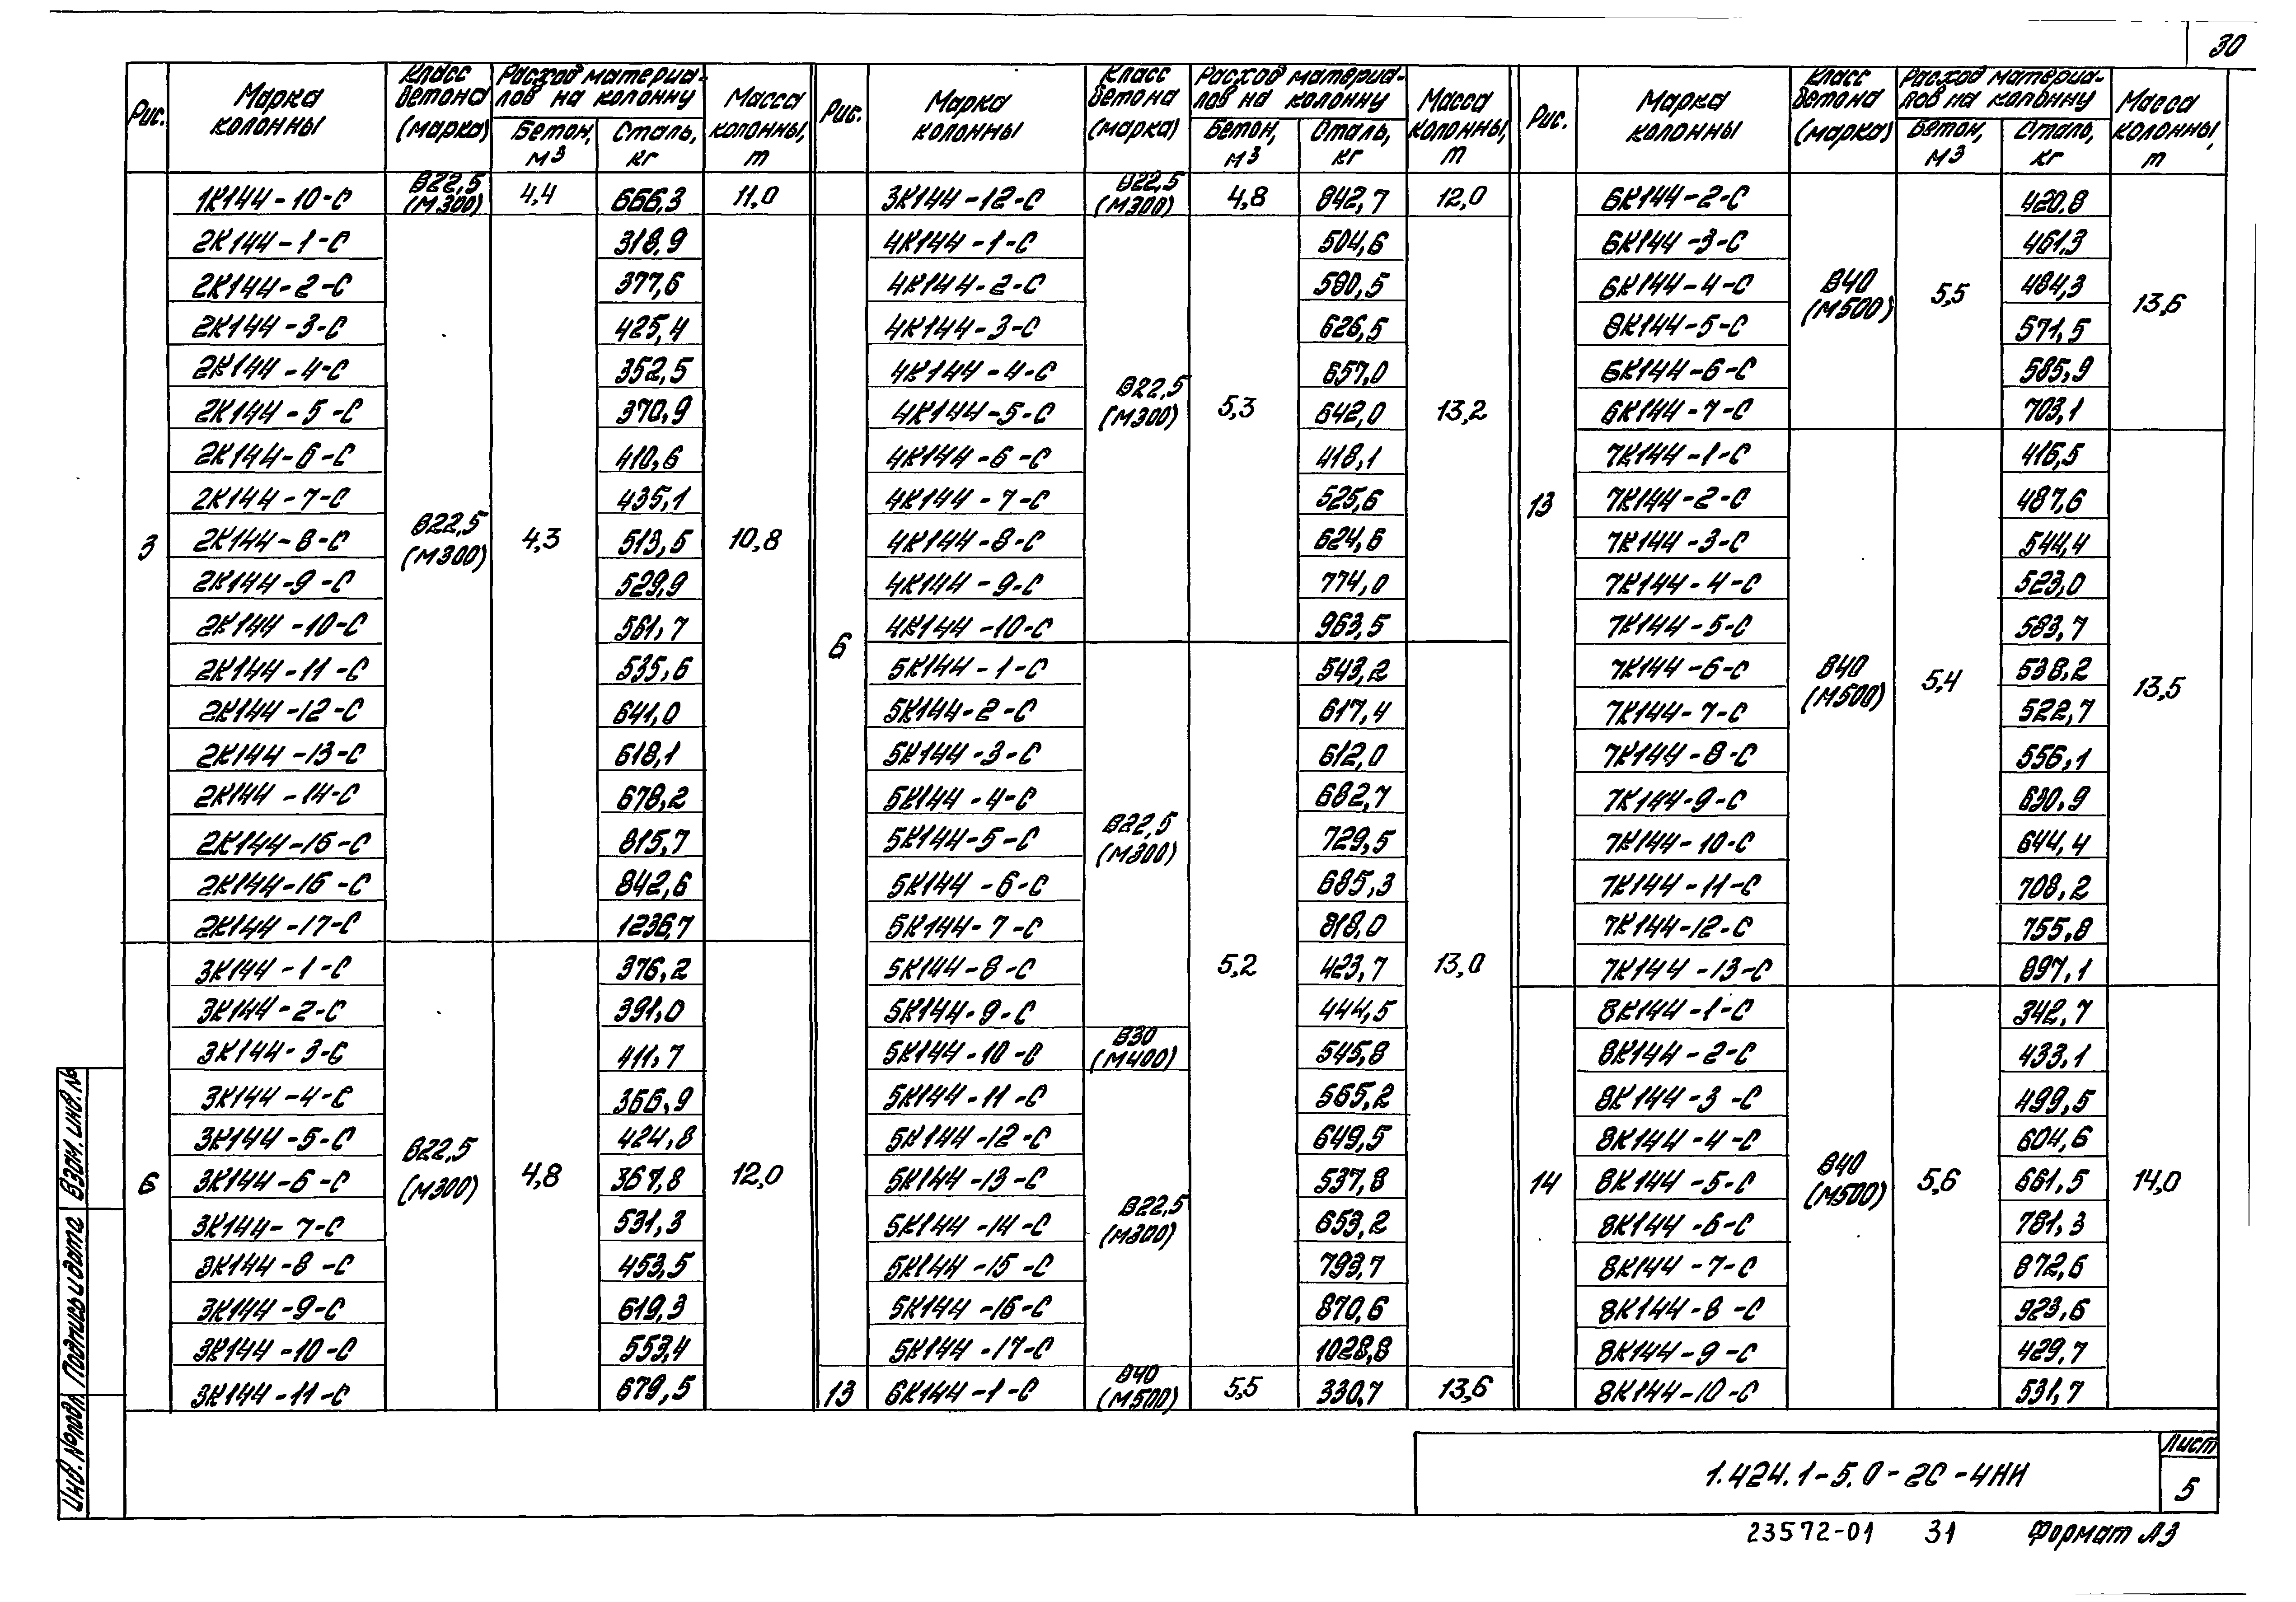 30
Рис. Марка колонны Класс бетона (марка) Расход материалов на колонну Бетон, м3 Сталь, кг Масса колонны, т
3 1К144-10-С В22,5 (М300) 4,4 666,3 11,0
2К144-1-С 318,9
2К144-2-С 377,6
2К144-3-С 425,4
2К144-4-С 352,5
2К144-5-С 370,9
2К144-6-С 410,6
2К144-7-С 435,1
2К144-8-С В22,5 (М300) 4,3 513,5 10,8
2К144-9-С 529,9
2К144-10-С 561,7
2К144-11-С 535,6
2К144-12-С 641,0
2К144-13-С 618,1
2К144-14-С 678,2
2К144-15-С 815,7
2К144-16-С 842,6
2К144-17-С 1236,7
3К144-1-С 376,2
3К144-2-С 391,0
3К144-3-С 411,7
3К144-4-С 366,9
3К144-5-С 424,8
6 3К144-6-С В22,5 (М300) 4,8 367,8 12,0
3К144-7-С 531,3
3К144-8-С 453,5
3К144-9-С 619,3
3К144-10-С 553,4
3К144-11-С 679,5
Рис. Марка колонны Класс бетона (марка) Расход материалов на колонну Бетон, м3 Сталь, кг Масса колонны, т
6 3К144-12-С В22,5 (М300) 4,8 842,7 12,0
4К144-1-С 504,6
4К144-2-С 580,5
4К144-3-С 626,5
4К144-4-С 657,0
4К144-5-С В22,5 (М300) 5,3 642,0 13,2
4К144-6-С 418,1
4К144-7-С 525,6
4К144-8-С 624,6
4К144-9-С 774,0
4К144-10-С 963,5
5К144-1-С 543,2
5К144-2-С 617,4
5К144-3-С 612,0
5К144-4-С 682,7
5К144-5-С В22,5 (М300) 729,5
5К144-6-С 685,3
5К144-7-С 818,0
5К144-8-С 5,2 423,7 13,0
5К144-9-С 444,5
5К144-10-С В30 (М400) 545,8
5К144-11-С 565,2
5К144-12-С 649,5
5К144-13-С 537,8
5К144-14-С В22,5 (М300) 653,2
5К144-15-С 793,7
5К144-16-С 870,6
5К144-17-С 1028,8
13 6К144-1-С В40 (М500) 5,5 330,7 13,6
Рис. Марка колонны Класс бетона (марка) Расход материалов на колонну Бетон, м3 Сталь, кг Масса колонны, т
6К144-2-С 420,8
6К144-3-С 461,3
6К144-4-С В40 (М500) 5,5 484,3 13,6
6К144-5-С 571,5
6К144-6-С 585,9
6К144-7-С 703,1
7К144-1-С 416,5
13 7К144-2-С 487,6
7К144-3-С 544,4
7К144-4-С 523,0
7К144-5-С 583,7
7К144-6-С В40 (М500) 5,4 538,2 13,5
7К144-7-С 522,7
7К144-8-С 556,1
7К144-9-С 630,9
7К144-10-С 644,4
7К144-11-С 708,2
7К144-12-С 755,8
7К144-13-С 897,1
8К144-1-С 342,7
8К144-2-С 433,1
8К144-3-С 499,5
8К144-4-С 604,6
14 8К144-5-С В40 (М500) 5,6 661,5 14,0
8К144-6-С 781,3
8К144-7-С 872,6
8К144-8-С 923,6
8К144-9-С 429,7
8К144-10-С 531,7
Инв. № подл. Подпись и дата Взам. инв. №
1.424.1-5.0-2С-4НИ
Лист
5
23572-01 31 Формат А3